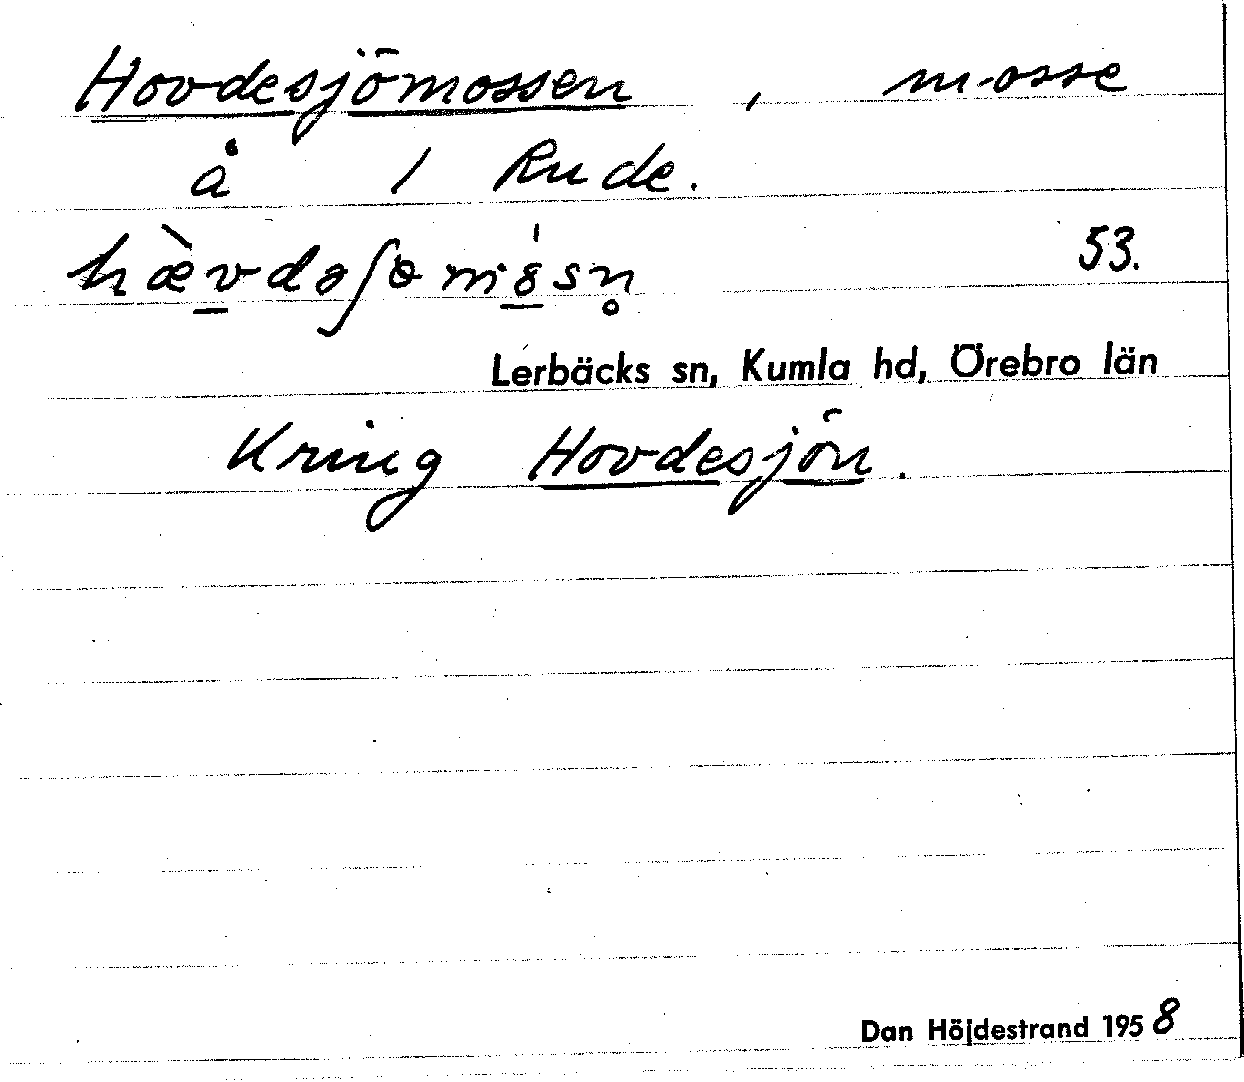 Hovdesjömossen, mosse
å 1 Rude.
hæ̀vdəʃɵmó̱sn̥ 53.
Lerbäcks sn, Kumla hd, Örebro län
Kring Hovdesjön.
Dan Höjdestrand 1958